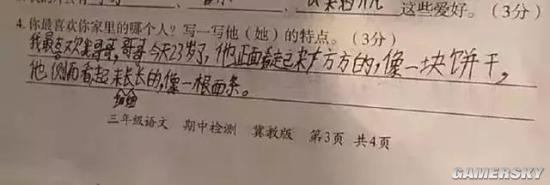 这些爱好。（3分）
4.你最喜欢你家里的哪个人？写一写他（她）的特点。（3分）
我最喜欢我哥哥，哥哥今天23岁了，他正面看起来方方的，像一块饼干，
他侧面看起来长长的，像一根面条。
细细
三年级语文 期中检测 冀教版 第3页 共4页
GAMERSKY